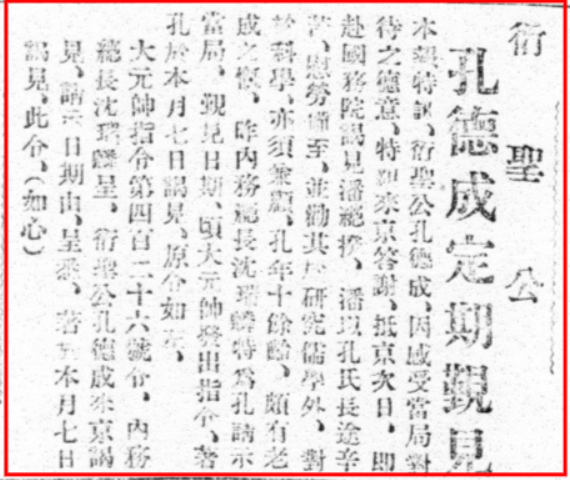 衍聖公
孔德成定期覲見
本報特訊、衍聖公孔德成、因感受當局對
待之德意、特親來京答謝、抵京次日、即
赴國務院謁見潘總揆、潘以孔氏長途辛
苦、慰勞備至、並勸其於研究儒學外、對
於科學、亦須兼顧、孔年十餘齡、頗有老
成之慨、昨內務總長沈瑞麟特爲孔請示
當局、覲見日期、頃大元帥發出指令、著
孔於本月七日謁見、原令如左、
大元帥指令第四百二十六號令、內務
總長沈瑞麟呈、衍聖公孔德成來京謁
見、請示日期由、呈悉、著於本月七日
謁見、此令、（如心）